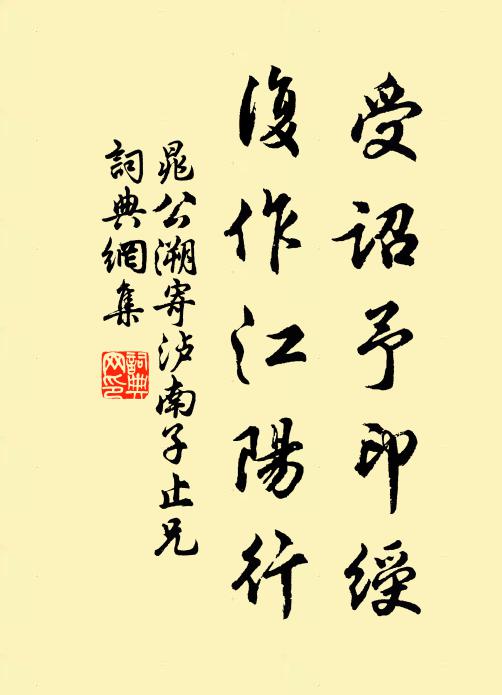 受詔予印綬
復作江陽行
晁公溯寄泸南子止兄
詞典網集
詞典網印